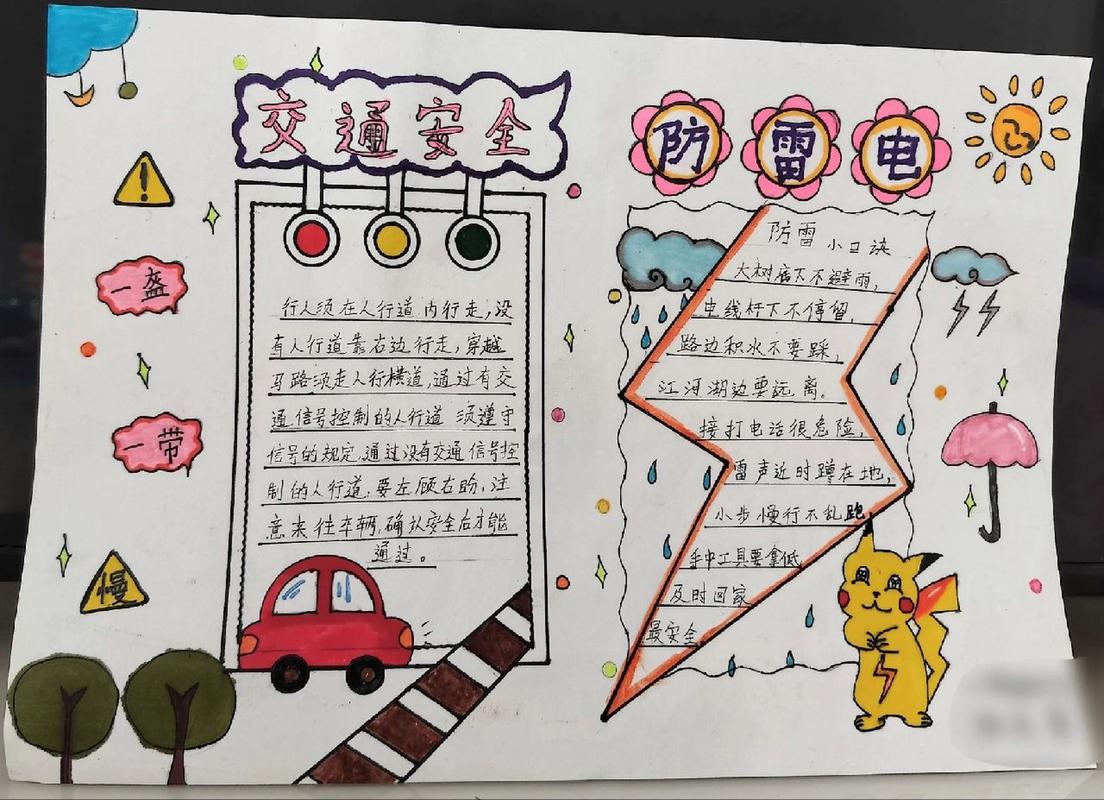 交通安全
!
一盔
一带
慢
行人须在人行道内行走,没
有人行道靠右边行走,穿越
马路须走人行横道,通过有交
通信号控制的人行道 须遵守
信号的规定,通过没有交通信号控
制的人行道,要左顾右盼,注
意来往车辆,确认安全后才能
通过。
防雷电
防雷小口诀
大树底下不避雨,
电线杆下不停留,
路边积水不要踩,
江河湖边要远离。
接打电话很危险,
雷声近时蹲在地,
小步慢行不乱跑
手中工具要拿低
及时回家
最安全